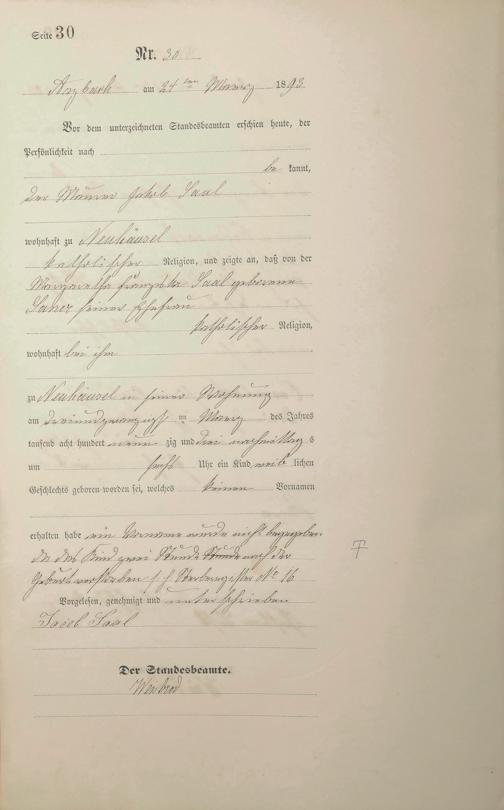 Seite 30
Nr. 30
Arzbach am 24 ten Maerz 1893
Vor dem unterzeichneten Standesbeamten erschien heute, der
Persönlichkeit nach
be kannt,
der Maurer Jakob Saal
wohnhaft zu Neuhäusel
katholischer Religion, und zeigte an, daß von der
Margaretha Franziska Saal geborene
seiner Ehefrau
katholischer Religion,
wohnhaft bei ihm
zu Neuhäusel in seiner Wohnung
am dreiundzwanzigsten Maerz des Jahres
tausend acht hundert neun zig und drei nachmittag s
um sechs Uhr ein Kind weib lichen
Geschlechts geboren worden sei, welches keinen Vornamen
erhalten habe ein Vorname wurde nicht begegeben
da das Kind zwei Stunde Stunde nach der
Geburt verstorben s. h. Sterberegister No 16
Vorgelesen, genehmigt und unterschrieben
Jacob Saal
Der Standesbeamte.